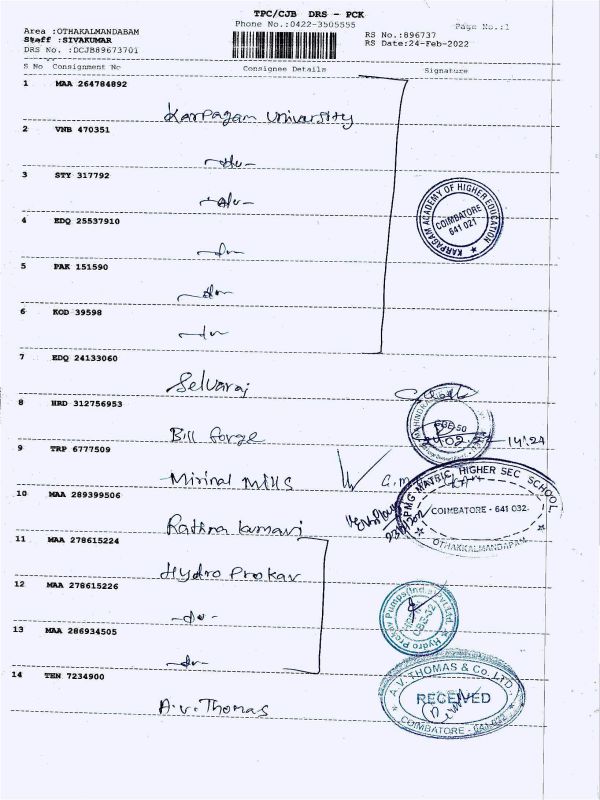 TPC/CJB DRS - PCK
Phone No.:0422-3505555
Page No.:1
Area :OTHAKALMANDABAM
Staff :SIVAKUMAR
DRS No. :DCJB89673701
RS No.:896737
RS Date:24-Feb-2022
S No Consignment No Consignee Details Signature
1 MAA 264784892
Karpagam University
2 VNB 470351
-do-
3 STY 317792
-do-
KARPAGAM ACADEMY OF HIGHER EDUCATION
COIMBATORE
641 021
4 EDQ 25537910
-do-
5 PAK 151590
-do-
6 KOD 39598
-do-
7 EDQ 24133060
Selvaraj
8 HRD 312756953
Bill forge
14:24
9 TRP 6777509
Mirinal Mills
MATRIC. HIGHER SEC SCHOOL
COIMBATORE - 641 032.
OTHAKKALMANDAPAM
10 MAA 289399506
Rathna kumari
11 MAA 278615224
Hydro Prokav
12 MAA 278615226
-do-
Hydro Prokav Pumps (India) Pvt Ltd
CBE-32
13 MAA 286934505
-do-
14 TEN 7234900
A.V. Thomas
A.V. THOMAS & Co. LTD.
RECEIVED
COIMBATORE - 641 032